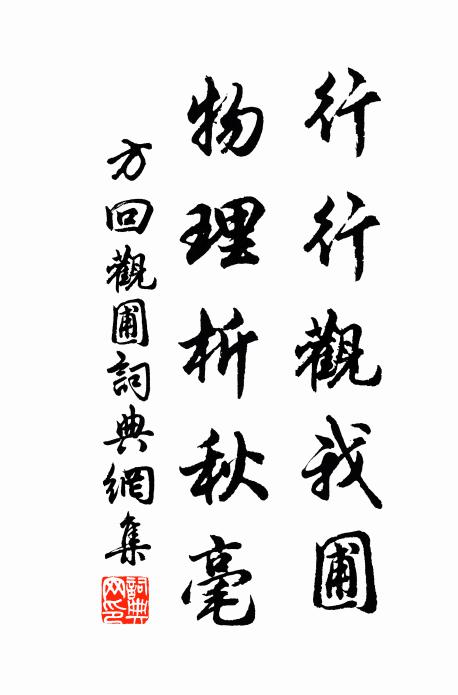 行行觀我圃
物理析秋毫
方回觀圃詞典網集
詞典网印